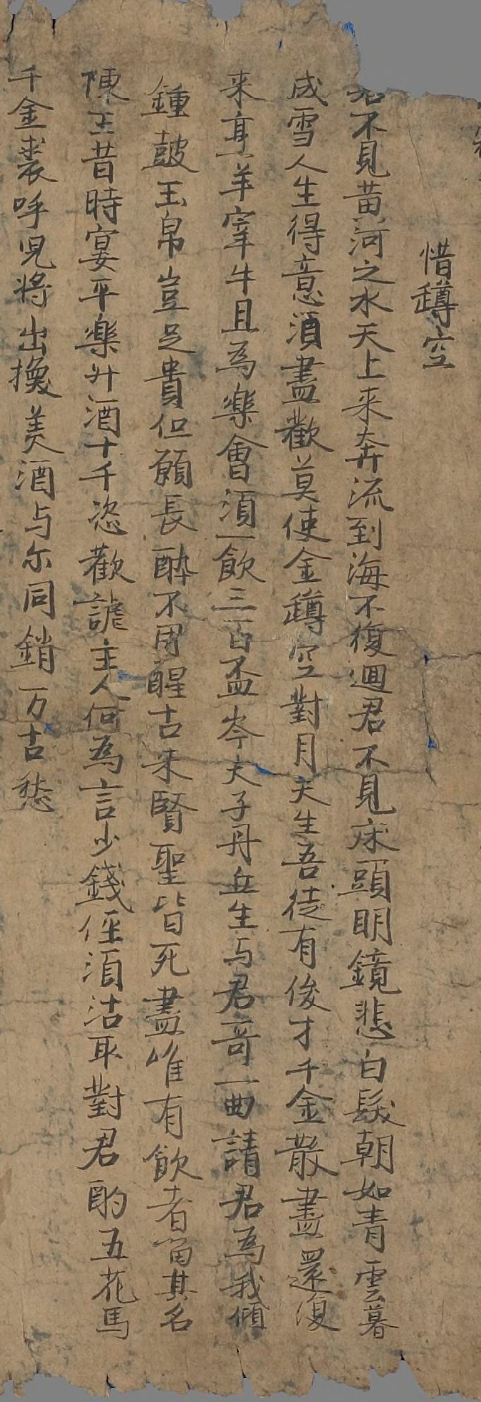 惜罇空
君不見黃河之水天上来奔流到海不復迴君不見床頭明鏡悲白髮朝如青雲暮
成雪人生得意湏盡歡莫使金罇空對月天生吾徒有俊才千金散盡還復
来烹羊宰牛且為樂會湏一飲三百盃岑夫子丹丘生与君哥一曲請君為我傾
鍾皷玉帛豈足貴但願長醉不用醒古来賢聖皆死盡唯有飲者留其名
陳王昔時宴平樂斗酒十千恣歡謔主人何為言少錢俓湏沽取對君酌五花馬
千金裘呼兒將出換美酒与尔同銷万古愁